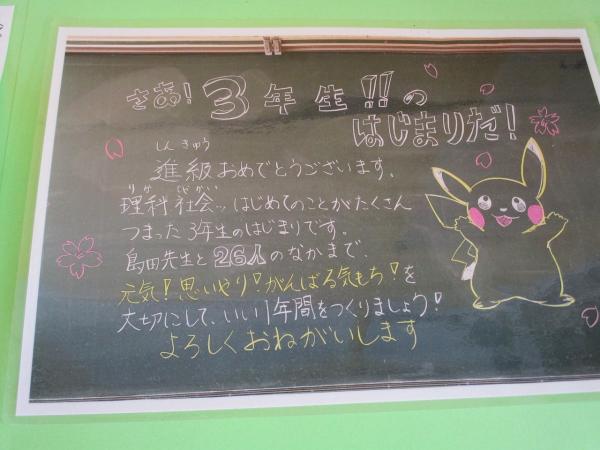 さあ！3年生!!の
はじまりだ！
しんきゅう
進級おめでとうございます。
りか しゃかい
理科 社会…はじめてのことがたくさん
つまった3年生のはじまりです。
島田先生と26人のなかまで、
元気！思いやり！がんばる気もち！を
大切にして、いい1年間をつくりましょう！
よろしくおねがいします